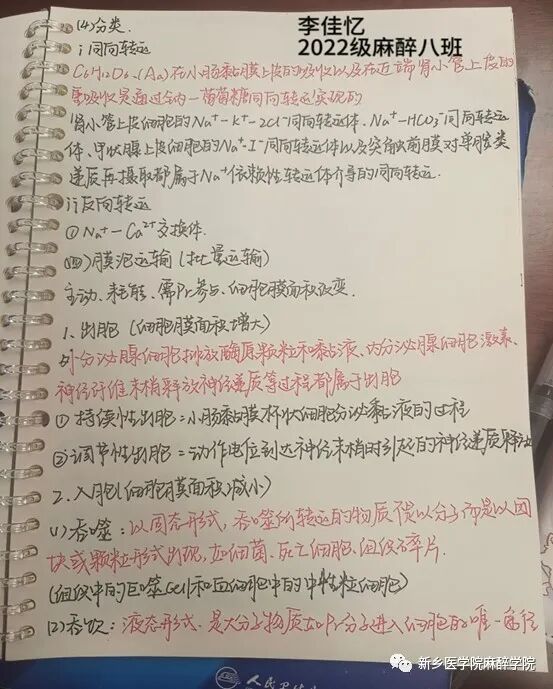 李佳忆
2022级麻醉八班
(4)分类.
i 同向转运
C₆H₁₂O₆、(Aa)在小肠黏膜上皮的吸收以及在近端肾小管上皮的
重吸收是通过钠—葡萄糖同向转运实现的
肾小管上皮细胞的Na⁺-K⁺-2Cl⁻同向转运体、Na⁺-HCO₃⁻同向转运
体、甲状腺上皮细胞的Na⁺-I⁻同向转运体以及突触前膜对单胺类
递质再摄取都属于Na⁺依赖性转运体介导的同向转运.
ii 反向转运
① Na⁺-Ca²⁺交换体.
(四)膜泡运输(批量运输)
主动、耗能、需Pr参与、细胞膜面积改变.
1. 出胞(细胞膜面积增大)
外分泌腺细胞排放酶原颗粒和黏液、内分泌腺细胞激素、
神经纤维末梢释放神经递质等过程都属于出胞
① 持续性出胞=小肠黏膜杯状细胞分泌黏液的过程
② 调节性出胞=动作电位到达神经末梢时引起的神经递质释放
2. 入胞(细胞膜面积减小)
(1)吞噬:以固态形式,吞噬所转运的物质不是以分子而是以团
块或颗粒形式出现,如细菌、死亡细胞、组织碎片.
(组织中的巨噬Cell和血细胞中的中性粒细胞)
(2)吞饮:液态形式.是大分子物质如Pr分子进入细胞的唯一途径
人民卫生
新乡医学院麻醉学院